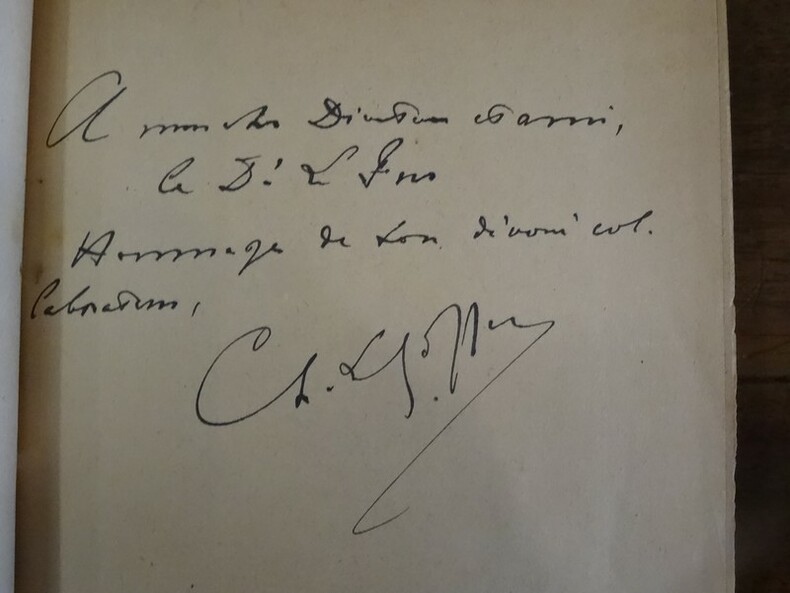 A mon cher Directeur et ami,
le Dr. Le Fur
Hommage de son dévoué col.
laborateur,
Ch.